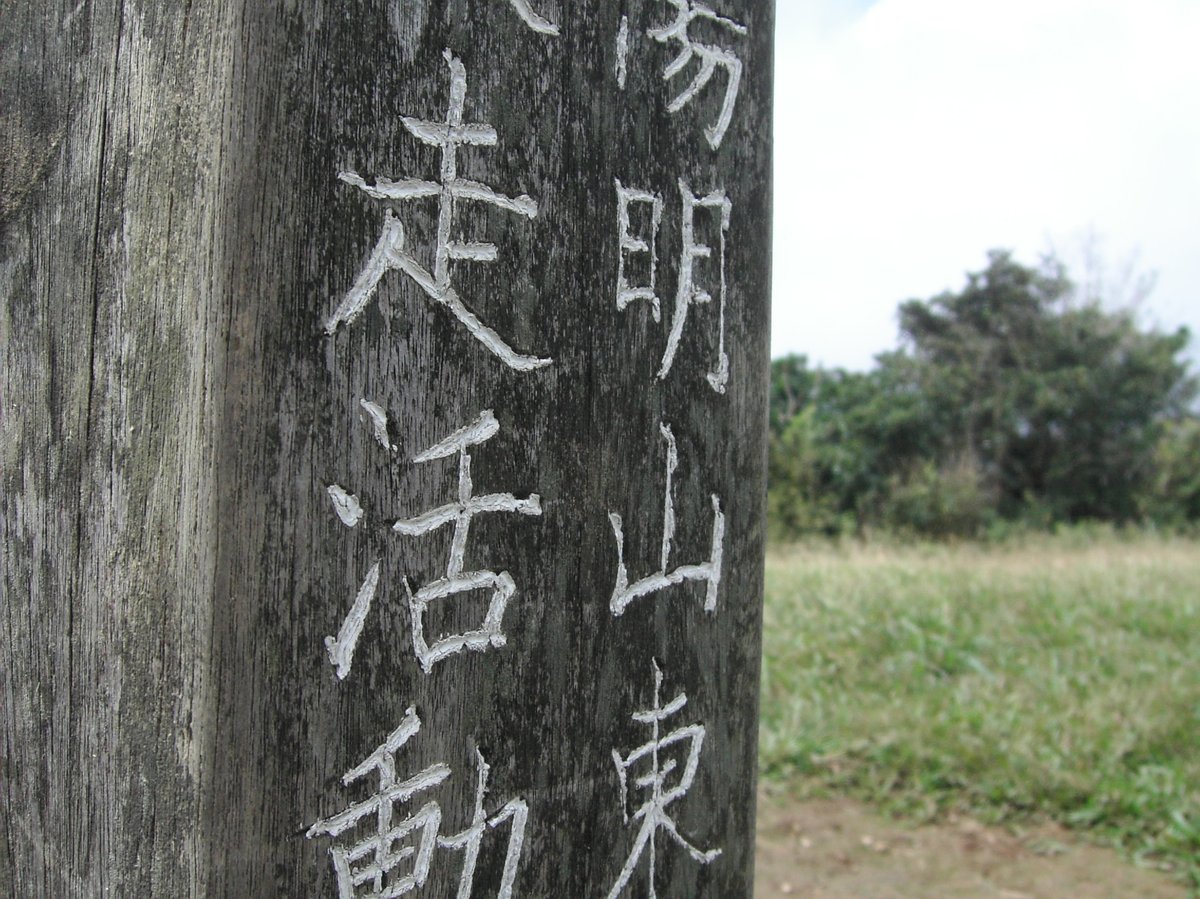 陽明山東
走活動